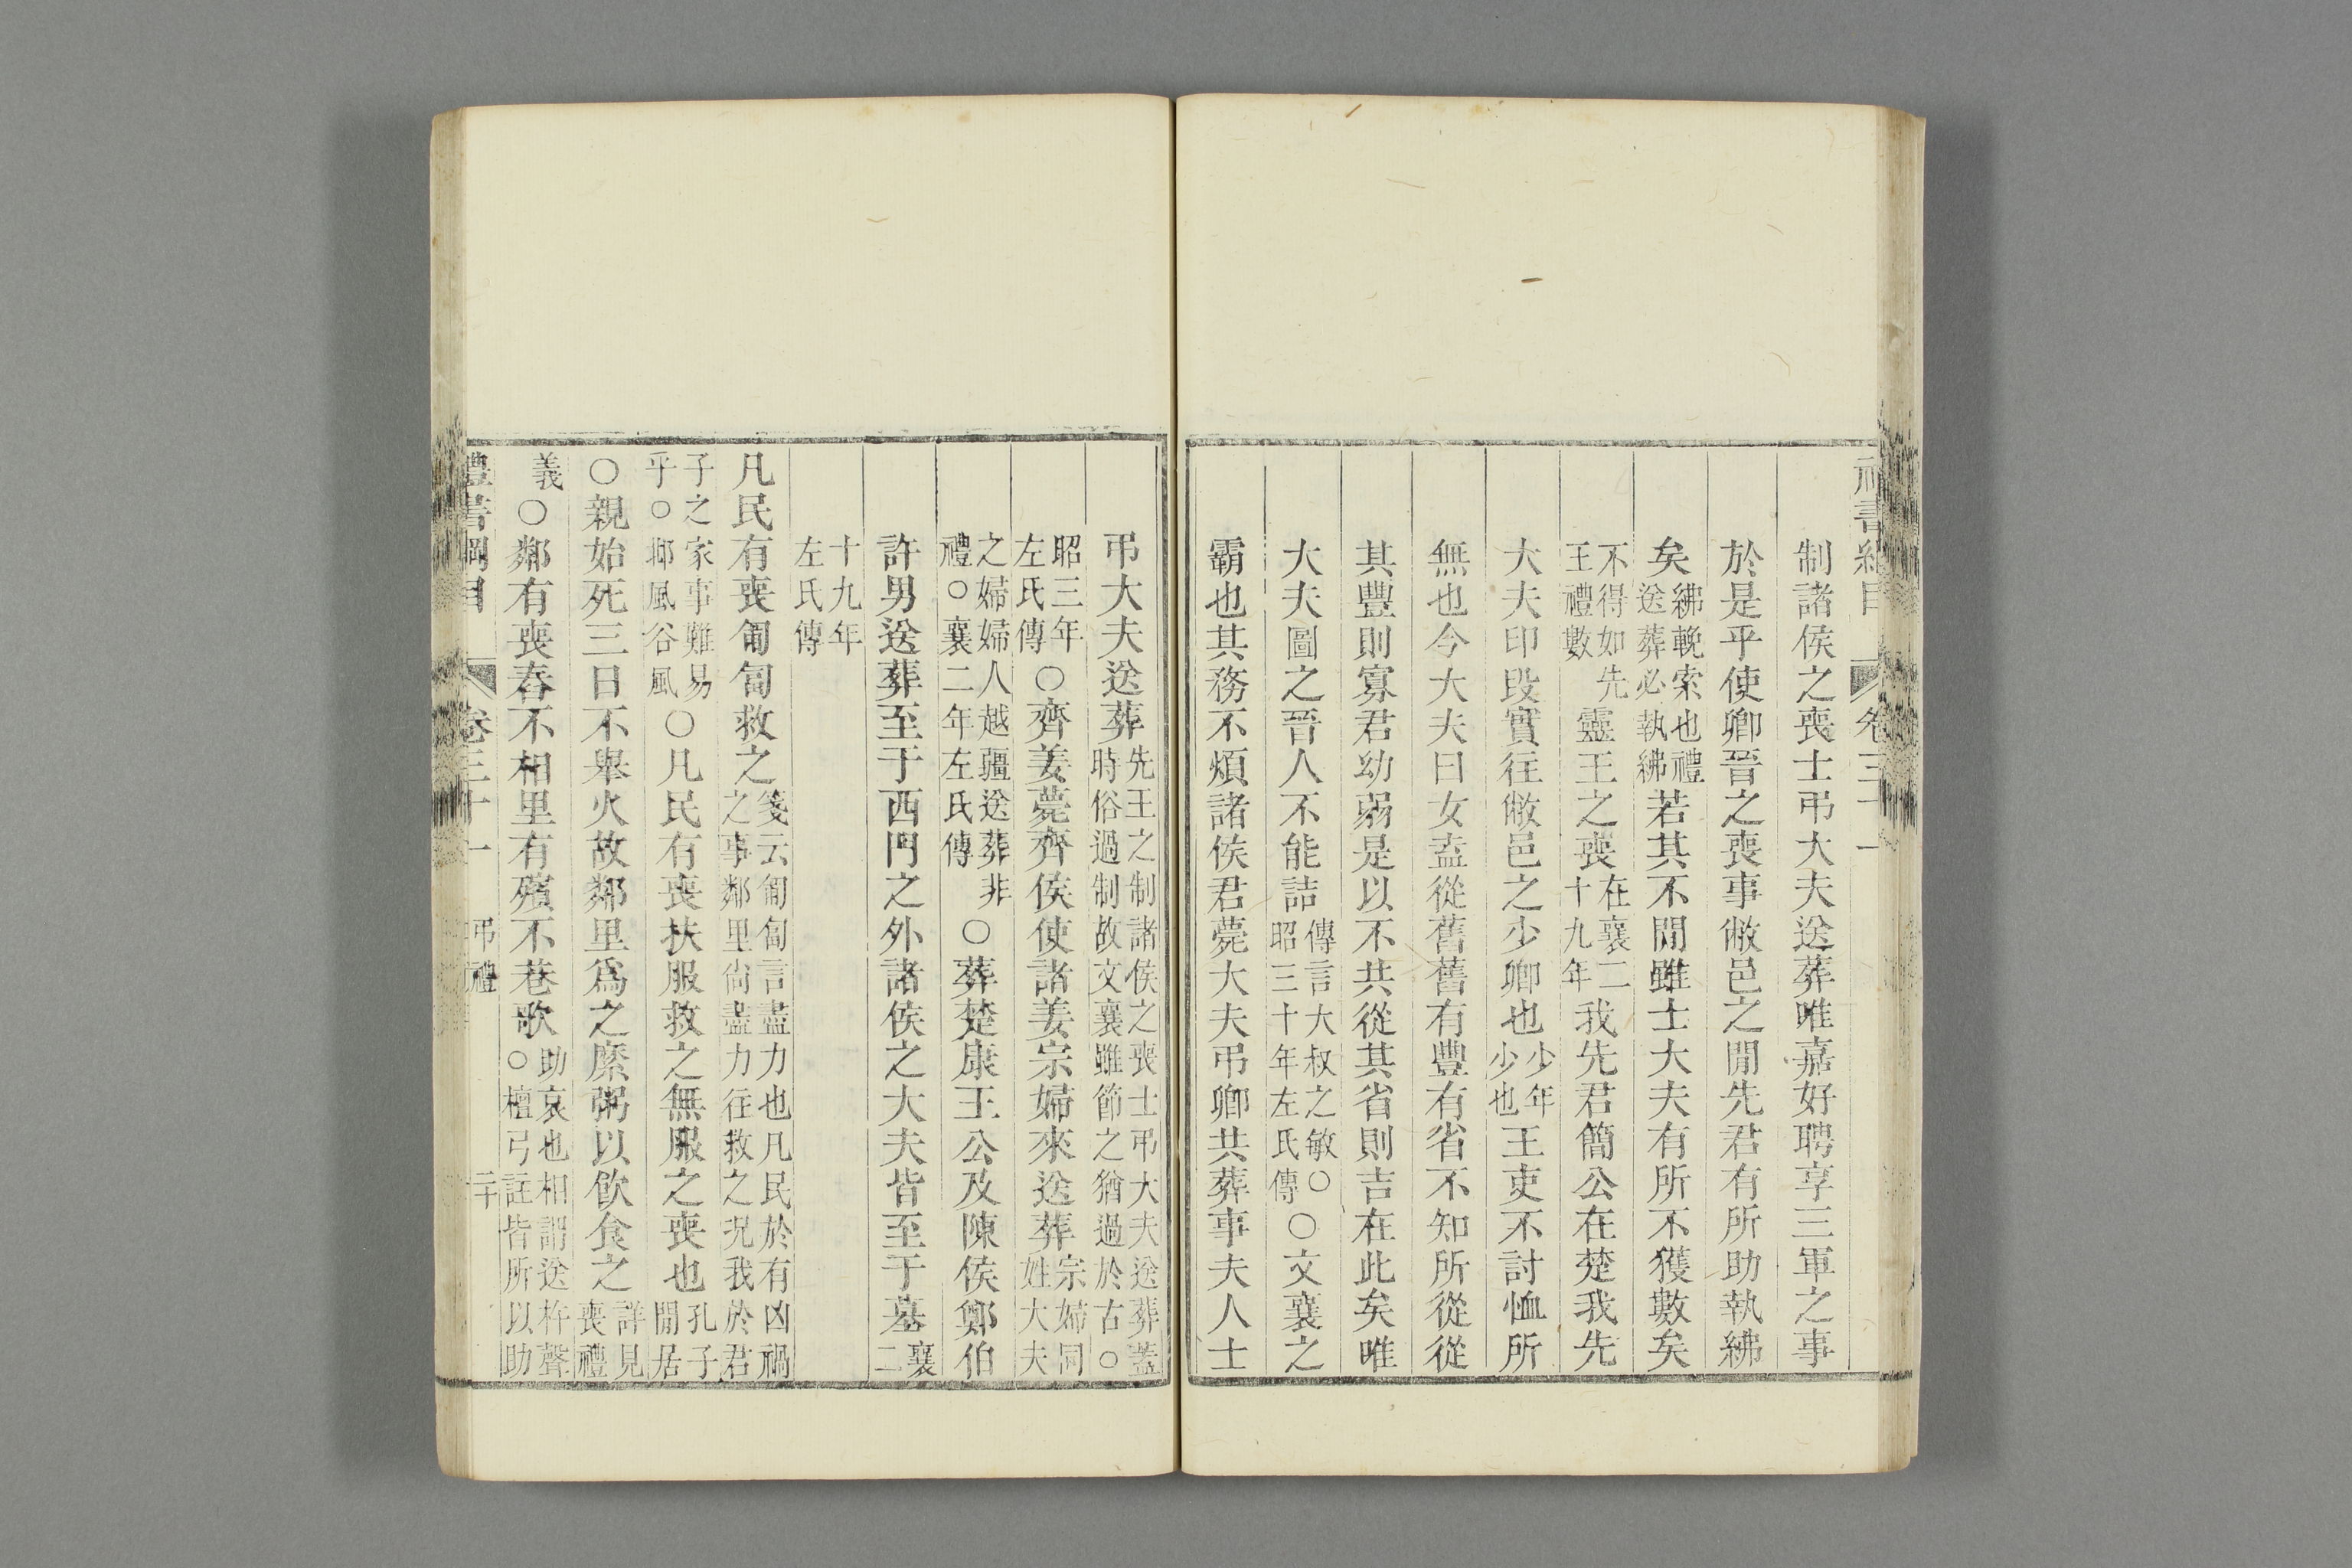 禮書綱目 卷三十一
制諸侯之喪士弔大夫送葬唯嘉好聘享三軍之事
於是乎使卿晉之喪事敝邑之閒先君有所助執紼
矣紼輓索也禮送葬必執紼若其不閒雖士大夫有所不獲數矣
不得如先王禮數靈王之喪在襄二十九年我先君簡公在楚我先
大夫印段實往敝邑之少卿也少年少也王吏不討恤所
無也今大夫曰女盍從舊舊有豐有省不知所從從
其豐則寡君幼弱是以不共從其省則吉在此矣唯
大夫圖之晉人不能詰傳言大叔之敏○昭三十年左氏傳○文襄之
霸也其務不煩諸侯君薨大夫弔卿共葬事夫人士
弔大夫送葬先王之制諸侯之喪士弔大夫送葬蓋時俗過制故文襄雖節之猶過於古○
昭三年左氏傳○齊姜薨齊侯使諸姜宗婦來送葬宗婦同姓大夫
之婦婦人越疆送葬非禮○襄二年左氏傳○葬楚康王公及陳侯鄭伯
許男送葬至于西門之外諸侯之大夫皆至于墓襄二
十九年左氏傳
凡民有喪匍匐救之箋云匍匐言盡力也凡民於有凶禍之事鄰里尚盡力往救之況我於君
子之家事難易乎○邶風谷風○凡民有喪扶服救之無服之喪也孔子閒居
○親始死三日不舉火故鄰里爲之糜粥以飲食之詳見喪禮
義○鄰有喪舂不相里有殯不巷歌助哀也相謂送杵聲○檀弓註皆所以助
禮書綱目 卷三十一 弔禮 二十